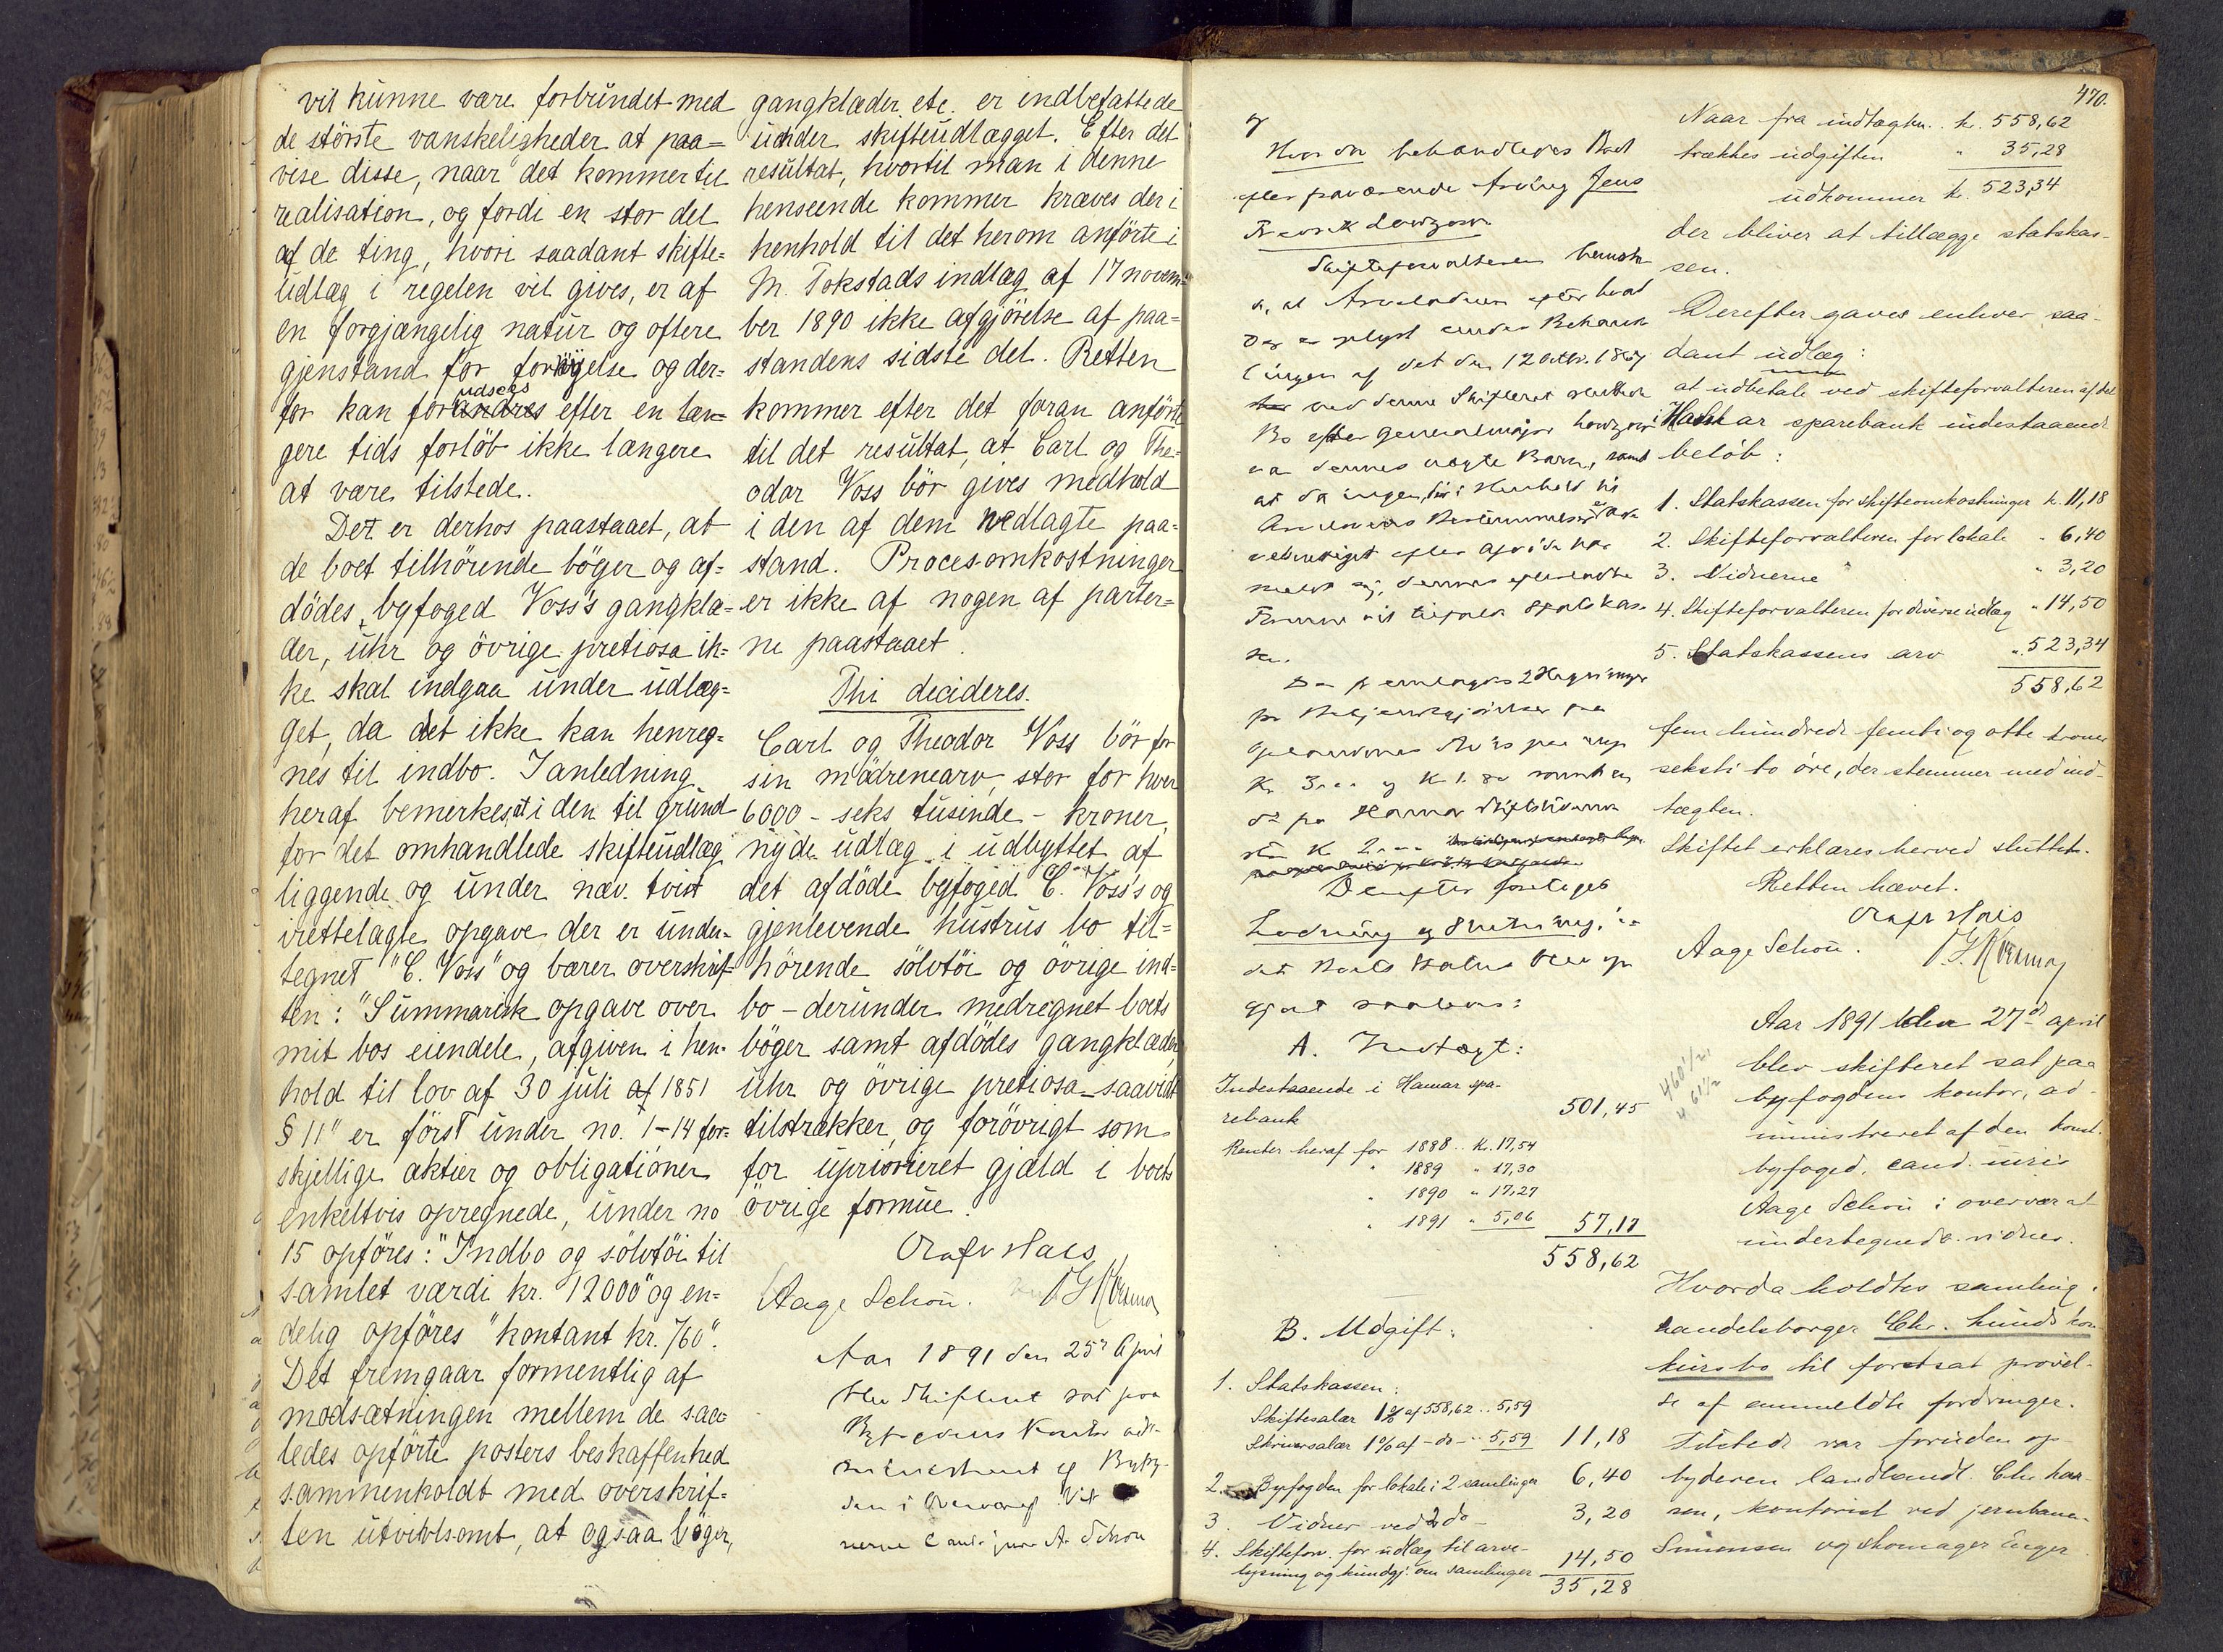 vil kunne være forbundet med
de störste vanskeligheder at paa=
vise disse, naar det kommer til
realisation, og fordi en stor del
af de ting, hvori saadant skifte=
udlæg i regelen vil gives, er af
en forgjængelig natur og oftere
gjenstand for forögelse og der=
udsees
for kan forandres efter en læn=
gere tids forlöb ikke længere
at være tilstede.
Det er derhos paastaaet, at
de boet tilhörende böger og af=
dödes, byfoged Voss's gangklæ=
der, uhr og övrige pretiosa ik=
ke skal indgaa under udlæg=
get, da det ikke kan henreg=
nes til indbo. I anledning
heraf bemerkes, at i den til grund
for det omhandlede skifteudlæg
liggende og under nærv. tvist
irettelagte opgave der er under=
tegnet "C. Voss" og bærer overskrif=
ten: "Summarisk opgave over
mit bos eiendele, afgiven i hen=
hold til lov af 30 juli af 1851
§ 11" er först under no. 1-14 for=
skjellige aktier og obligationer
enkeltvis opregnede, under no
15 opföres: "Indbo og sölvtöi til
samlet værdi kr. 12000" og en=
delig opföres "kontant kr. 760".
Det fremgaar formentlig af
modsætningen mellem de saa=
ledes opförte posters beskaffenhed
sammenholdt med overskrif=
ten utvivlsomt, at ogsaa böger,
gangklæder etc. er indbefattede
under skifteudlægget. Efter det
resultat, hvortil man i denne
henseende kommer kræves der i
henhold til det herom anförte i
M. Tokstads indlæg af 17 novem=
ber 1890 ikke afgjörelse af paa=
standens sidste del. Retten
kommer efter det foran anförte
til det resultat, at Carl og The=
odor Voss bör gives medhold
i den af dem nedlagte paa=
stand. Procesomkostninger
er ikke af nogen af parter=
ne paastaaet.
Thi decideres.
Carl og Theodor Voss bör for
sin mödrenearv, stor for hver
6000 - seks tusinde - kroner,
nyde udlæg i udbyttet af
det afdöde byfoged C. Voss's og
gjenlevende hustrus bo til=
hörende sölvtöi og övrige ind=
bo - derunder medregnet boets
böger samt afdödes gangklæder,
uhr og övrige pretiosa - saavidt
tilstrækker, og forövrigt som
for uprioriteret gjæld i boets
övrige formue.
Aage Schou.
Aar 1891 den 25de April
blev Skifteret sat paa
Byfogdens Kontor ad=
ministreret af Byfog=
den i Overvær af Vid
nerne Cand. jur. A. Schou
470.
og
Hvor da behandledes Boet
efter fraværende Arving Jens
Fredrik Lowzow.
Skifteforvalteren bemærke
de, at Arveladeren efter hvad
der er oplyst under Behand
lingen af det den 12 Octbr. 1867
ved denne Skifteret sluttede
Bo efter Generalmajor Lowzow
var dennes ægte Barn, samt
at da ingen, der i Henhold til
Arvelovens Bestemmelser er Arve
berettiget efter Afdöde har
meldt sig, dennes efterladte
Formue vil tilfalde Statskas-
sen.
Derefter foretoges
Lodning og Slutning, i
det Boets Status blev op
gjort saaledes:
A. Indtægt:
Indestaaende i Hamar spa-
rebank 501,45
Renter heraf for 1888 .. Kr. 17,54
" 1889 " 17,30
" 1890 " 17,27
" 1891 " 5,06 57,17
558,62
B. Udgift:
1. Statskassen:
Skiftesalær 1% af 558,62 .. 5,59
Skriversalær 1% af - do - " 5,59 11,18
2. Byfogden for lokale i 2 samlinger 6,40
3. Vidner ved 2 do - 3,20
4. Skifteforv. for udlæg til arve-
lysning og kundgj. om samlinger 14,50
35,28
Naar fra indtægten .. kr. 558,62
trækkes udgiften " 35,28
udkommer kr. 523,34
der bliver at tillægge statskas-
sen.
Derefter gaves enhver saa-
dant udlæg:
at udbetale ved skifteforvalteren af det
i Hamar sparebank indestaaende
belöb:
1. Statskassen for skifteomkostninger kr. 11,18
2. Skifteforvalteren for lokale " 6,40
3. Vidnerne " 3,20
4. Skifteforvalteren for diverse udlæg " 14,50
5. Statskassens arv " 523,34
558,62
fem hundrede femti og otte kroner
seksti to öre, der stemmer med ind-
tægten.
Skiftet erklæres herved sluttet.
Retten hævet.
Aage Schou.
460 1/2,
461 1/2
Aar 1891 den 27d april
blev skifteret sat paa
byfogdens kontor, ad-
ministreret af den konst.
byfoged, cand. juris
Aage Schou i overvær af
undertegnede vidner.
Hvorda holdtes samling i
handelsborger Chr. Lunds kon-
kursbo til fortsat prövel-
se af anmeldte fordringer.
Tilstede var foruden op-
byderen landhandl. Chr. Lar-
sen, kontorist ved jernbanen
Simensen og skomager Enger